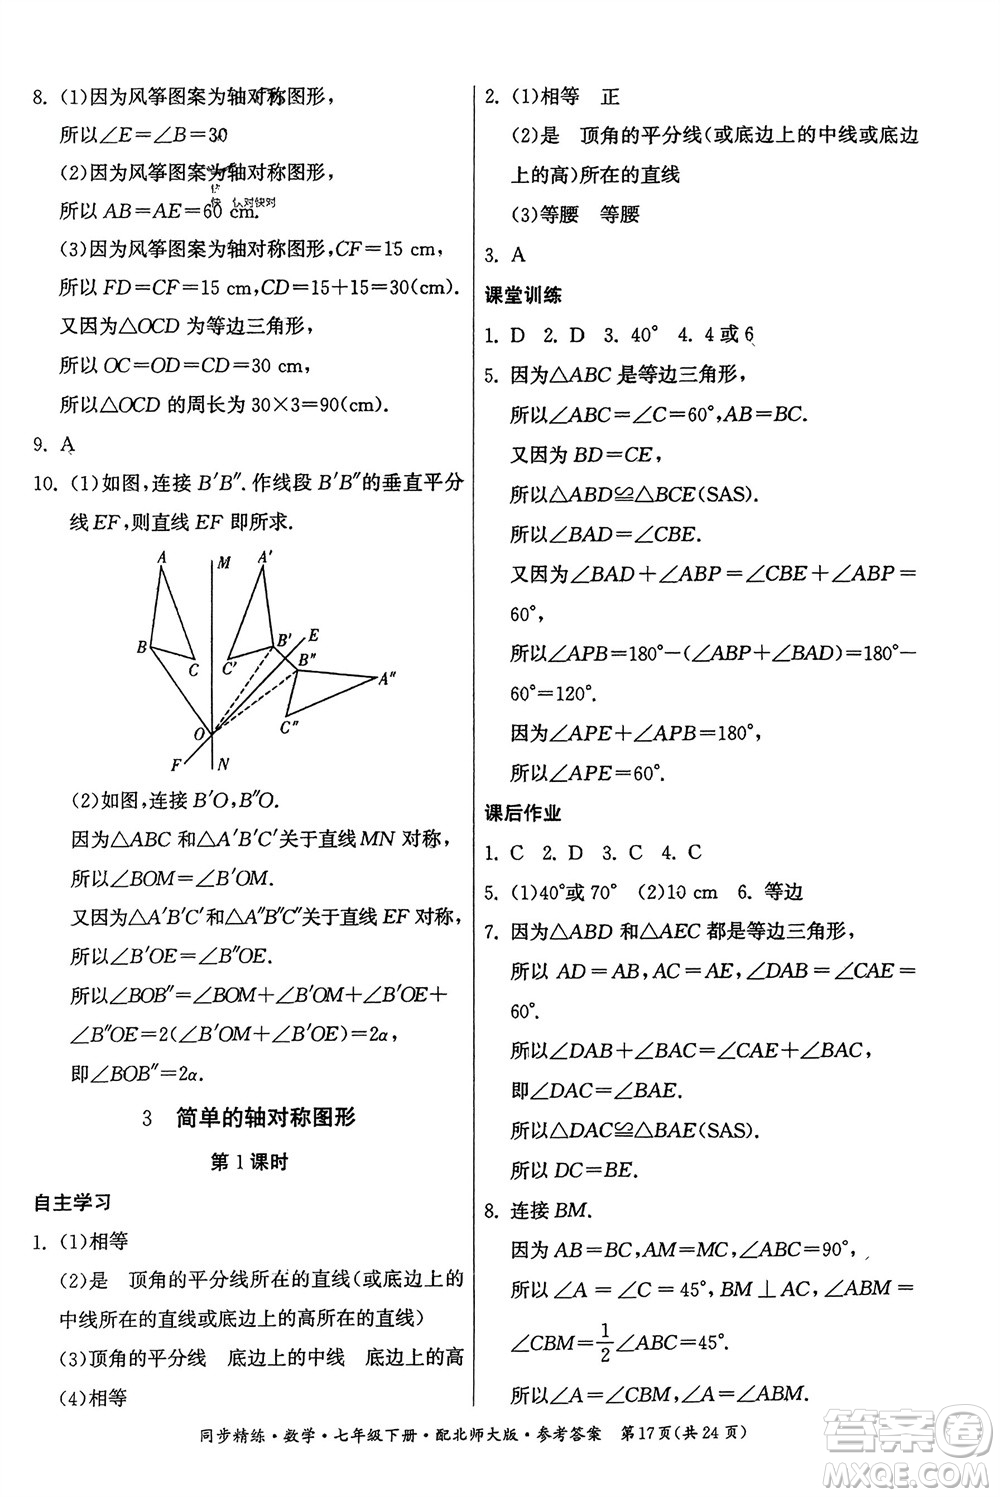 8. (1)因为风筝图案为轴对称图形，
所以∠E＝∠B＝30
(2)因为风筝图案为轴对称图形，
所以 AB＝AE＝60 cm.
(3)因为风筝图案为轴对称图形，CF＝15 cm，
所以 FD＝CF＝15 cm，CD＝15＋15＝30(cm).
又因为△OCD 为等边三角形，
所以 OC＝OD＝CD＝30 cm，
所以△OCD 的周长为 30×3＝90(cm).
9. A
10. (1)如图，连接 B′B″.作线段 B′B″的垂直平分
线 EF，则直线 EF 即所求.
A M A′
B C C′ B′ E
B″ A″
C″
O
F N
(2)如图，连接 B′O，B″O.
因为△ABC 和△A′B′C′关于直线 MN 对称，
所以∠BOM＝∠B′OM.
又因为△A′B′C′和△A″B″C″关于直线 EF 对称，
所以∠B′OE＝∠B″OE.
所以∠BOB″＝∠BOM＋∠B′OM＋∠B′OE＋
∠B″OE＝2(∠B′OM＋∠B′OE)＝2α，
即∠BOB″＝2α.
3 简单的轴对称图形
第 1 课时
自主学习
1. (1)相等
(2)是 顶角的平分线所在的直线(或底边上的
中线所在的直线或底边上的高所在的直线)
(3)顶角的平分线 底边上的中线 底边上的高
(4)相等
2. (1)相等 正
(2)是 顶角的平分线(或底边上的中线或底边
上的高)所在的直线
(3)等腰 等腰
3. A
课堂训练
1. D 2. D 3. 40° 4. 4 或 6
5. 因为△ABC 是等边三角形，
所以∠ABC＝∠C＝60°，AB＝BC.
又因为 BD＝CE，
所以△ABD≌△BCE(SAS).
所以∠BAD＝∠CBE.
又因为∠BAD＋∠ABP＝∠CBE＋∠ABP＝
60°，
所以∠APB＝180°－(∠ABP＋∠BAD)＝180°－
60°＝120°.
因为∠APE＋∠APB＝180°，
所以∠APE＝60°.
课后作业
1. C 2. D 3. C 4. C
5. (1)40°或 70° (2)10 cm 6. 等边
7. 因为△ABD 和△AEC 都是等边三角形，
所以 AD＝AB，AC＝AE，∠DAB＝∠CAE＝
60°.
所以∠DAB＋∠BAC＝∠CAE＋∠BAC，
即∠DAC＝∠BAE.
所以△DAC≌△BAE(SAS).
所以 DC＝BE.
8. 连接 BM.
因为 AB＝BC，AM＝MC，∠ABC＝90°，
所以∠A＝∠C＝45°，BM⊥AC，∠ABM＝
∠CBM＝1/2∠ABC＝45°.
所以∠C＝∠CBM，∠A＝∠ABM.
同步精练·数学·七年级下册·配北师大版·参考答案 第17页(共24页)
答案圈
MXQE.COM